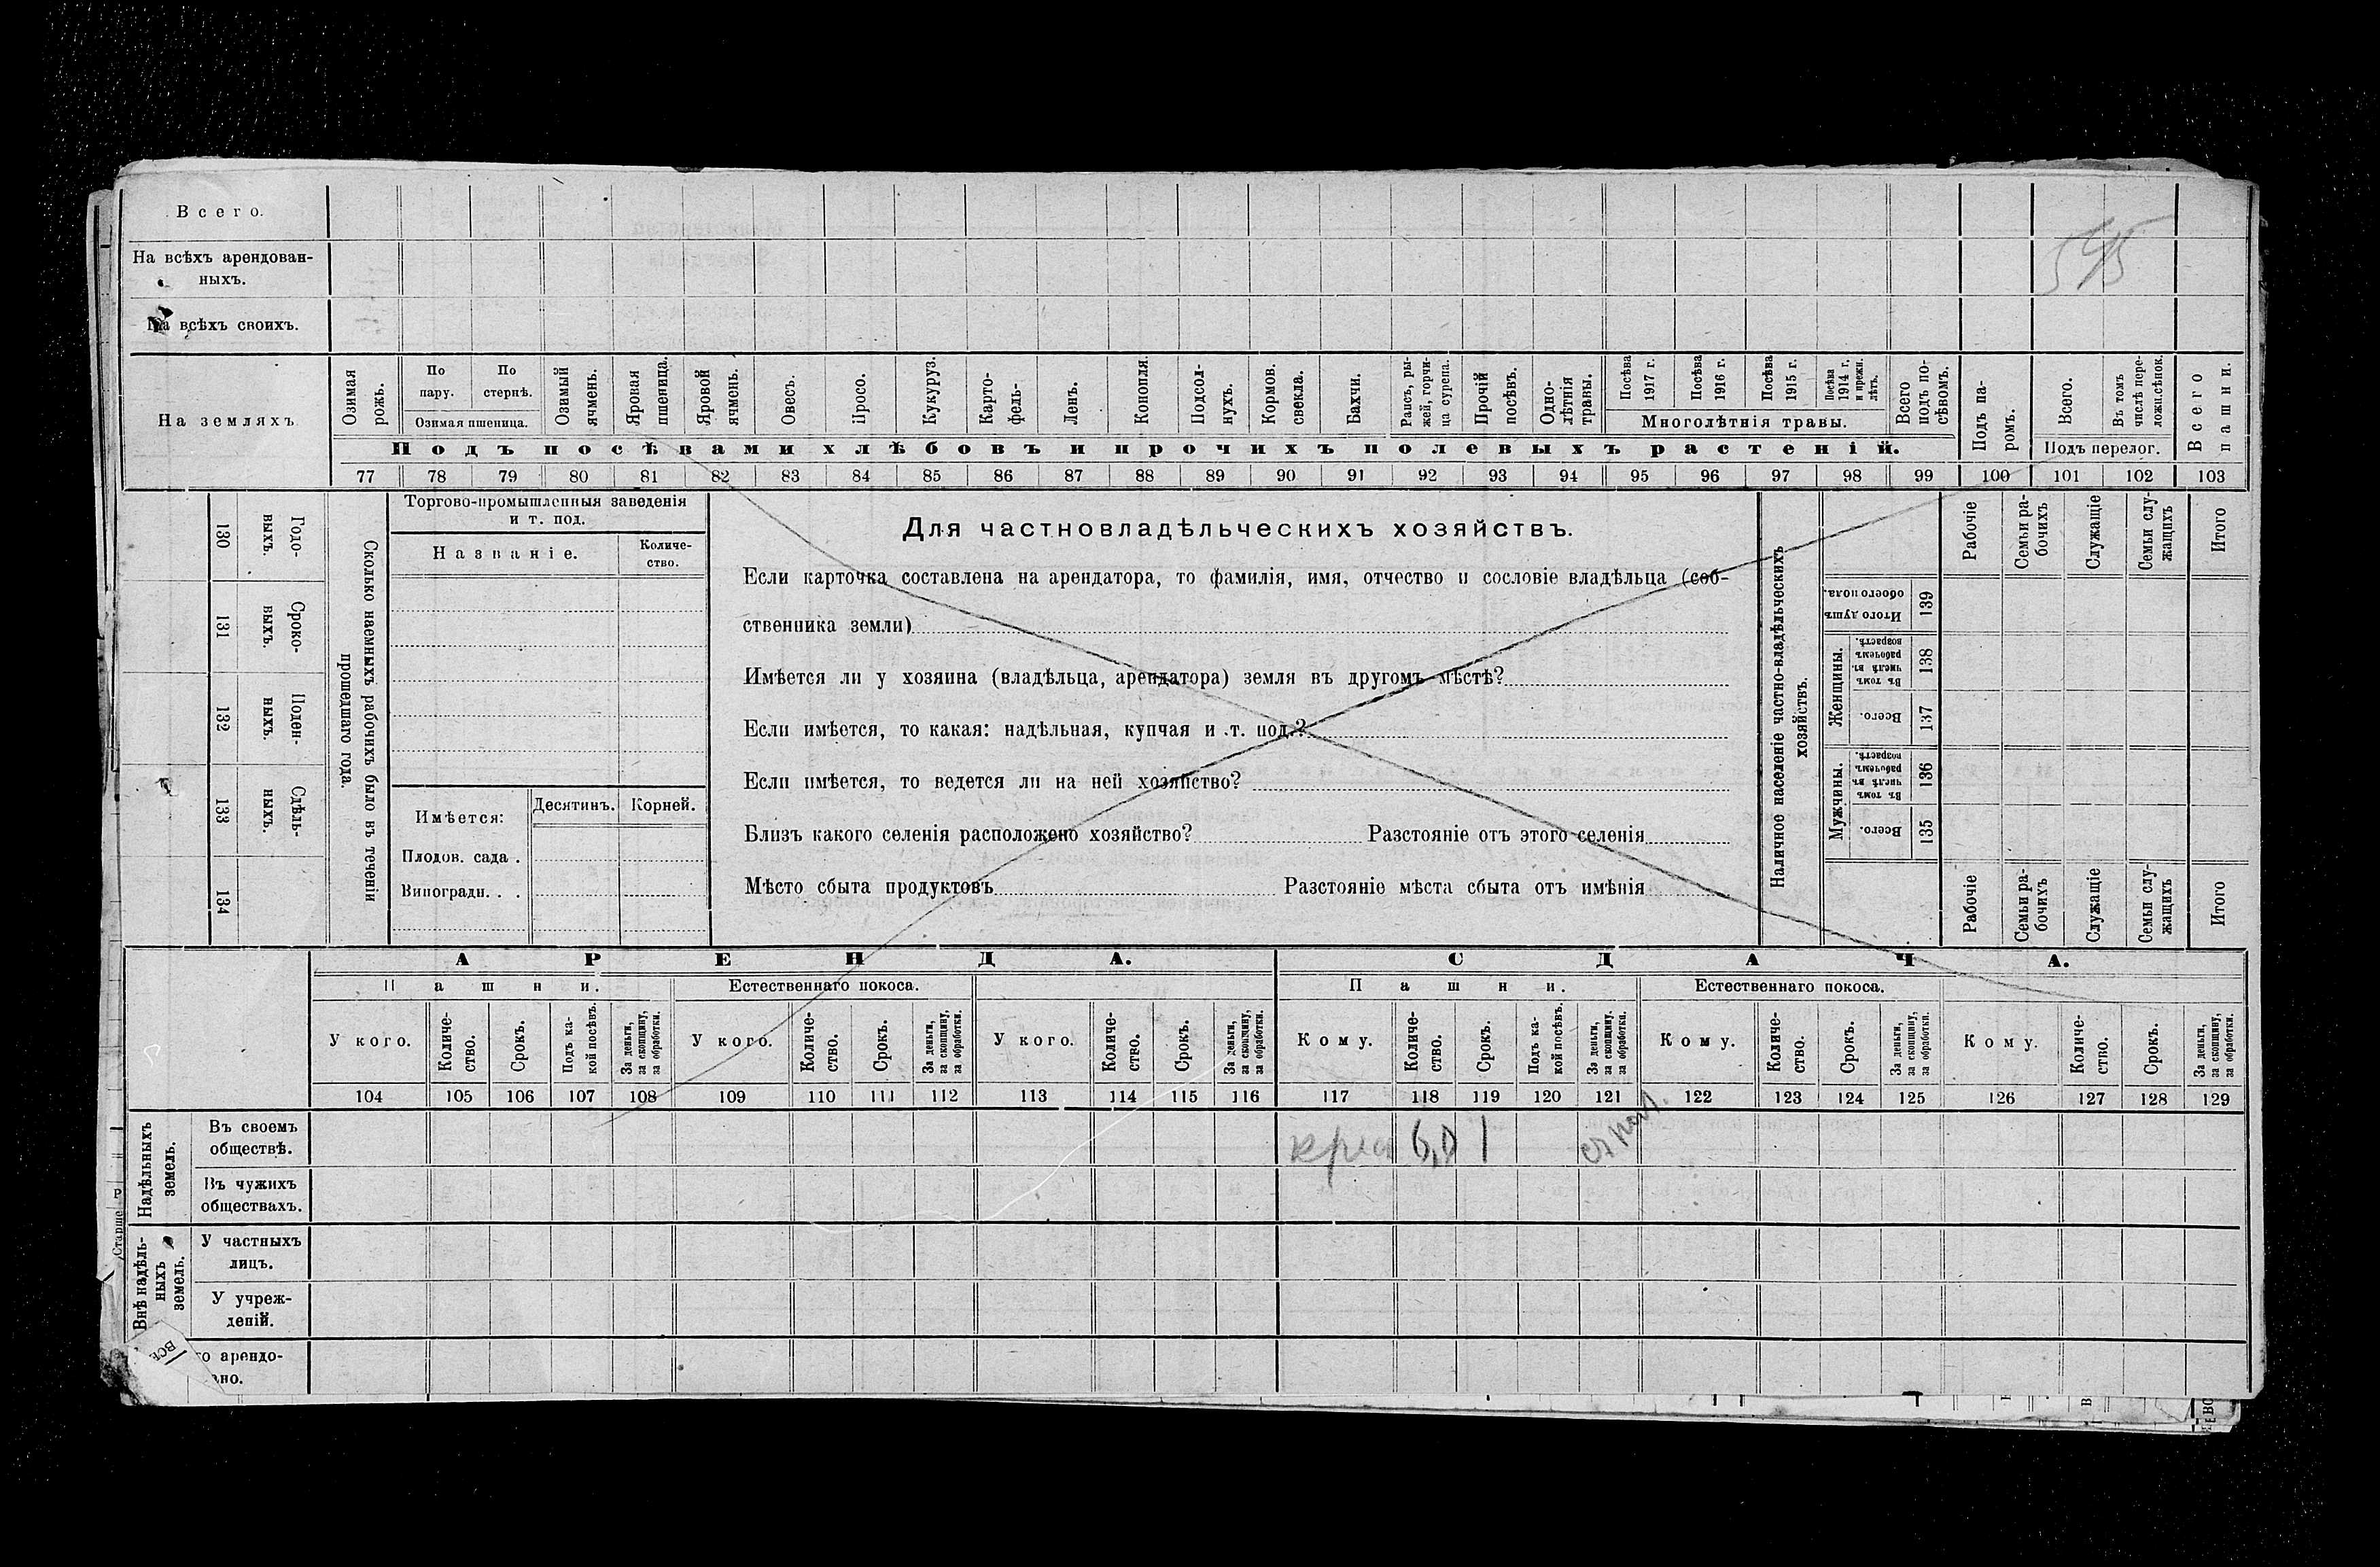 Всего.
На всѣхъ арендован-
ныхъ.
545
На всѣхъ своихъ.
На земляхъ
Озимая рожь.
По пару.
По стернѣ.
Озимая пшеница.
Озимый ячмень.
Яровая пшеница.
Яровой ячмень.
Овесъ.
Просо.
Кукуруз.
Карто-
фель-
Ленъ.
Конопля.
Подсол-
нухъ.
Кормов.
свекла.
Бахчи.
Рапсъ, ры-
жей, горчи-
ца сурепа.
Прочій
посѣвъ.
Одно-
лѣтнія
травы.
Посѣва
1917 г.
Посѣва
1916 г.
Посѣва
1915 г.
Посѣва
1914 г.
и прежн.
лѣтъ.
Многолѣтнія травы.
Всего
подъ по-
сѣвомъ.
Подъ па-
ромъ.
Всего.
Въ томъ
числѣ пере-
лож. сѣнок.
Подъ перелог.
Всего
пашни.
Подъ посѣвами хлѣбовъ и прочихъ полевыхъ растеній.
77 78 79 80 81 82 83 84 85 86 87 88 89 90 91 92 93 94 95 96 97 98 99 100 101 102 103
130 Годо-
выхъ.
131 Сроко-
выхъ.
132 Поден-
ныхъ.
133 Сдѣль-
ныхъ.
134
Сколько наемныхъ рабочихъ было въ теченіи
прошедшаго года.
Торгово-промышленныя заведенія
и т. под.
Названіе.
Количе-
ство.
Имѣется:
Десятинъ.
Корней.
Плодов. сада .
Виноградн. . .
Для частновладѣльческихъ хозяйствъ.
Если карточка составлена на арендатора, то фамилія, имя, отчество и сословіе владѣльца (соб-
ственника земли)
Имѣется ли у хозяина (владѣльца, арендатора) земля въ другомъ мѣстѣ?
Если имѣется, то какая: надѣльная, купчая и т. под.?
Если имѣется, то ведется ли на ней хозяйство?
Близъ какого селенія расположено хозяйство? Разстояніе отъ этого селенія
Мѣсто сбыта продуктовъ Разстояніе мѣста сбыта отъ имѣнія
Наличное населеніе частно-владѣльческихъ
хозяйствъ.
Рабочіе
Семьи ра-
бочихъ
Служащіе
Семьи слу-
жащихъ
Итого
Итого душъ
обоего пола.
139
Женщины.
Въ томъ
числѣ въ
рабочемъ
возрастѣ.
138
Всего.
137
Мужчины.
Въ томъ
числѣ въ
рабочемъ
возрастѣ.
136
Всего.
135
Рабочіе
Семьи ра-
бочихъ
Служащіе
Семьи слу-
жащихъ
Итого
АРЕНДА.
СДАЧА.
Пашни.
Естественнаго покоса.
Пашни.
Естественнаго покоса.
У кого.
Количе-
ство.
Срокъ.
Подъ ка-
кой посѣвъ.
За деньги,
за скопщину,
за обработки.
У кого.
Количе-
ство.
Срокъ.
За деньги,
за скопщину,
за обработки.
У кого.
Количе-
ство.
Срокъ.
За деньги,
за скопщину,
за обработки.
Кому.
Количе-
ство.
Срокъ.
Подъ ка-
кой посѣвъ.
За деньги,
за скопщину,
за обработки.
Кому.
Количе-
ство.
Срокъ.
За деньги,
за скопщину,
за обработки.
Кому.
Количе-
ство.
Срокъ.
За деньги,
за скопщину,
за обработки.
104 105 106 107 108 109 110 111 112 113 114 115 116 117 118 119 120 121 122 123 124 125 126 127 128 129
Надѣльныхъ
земель.
Въ своемъ
обществѣ.
6,0 1
Въ чужихъ
обществахъ.
Внѣ надѣль-
ныхъ
земель.
У частныхъ
лицъ.
У учреж-
деній.
го арендо-
ано.
Старше
ВСЕ